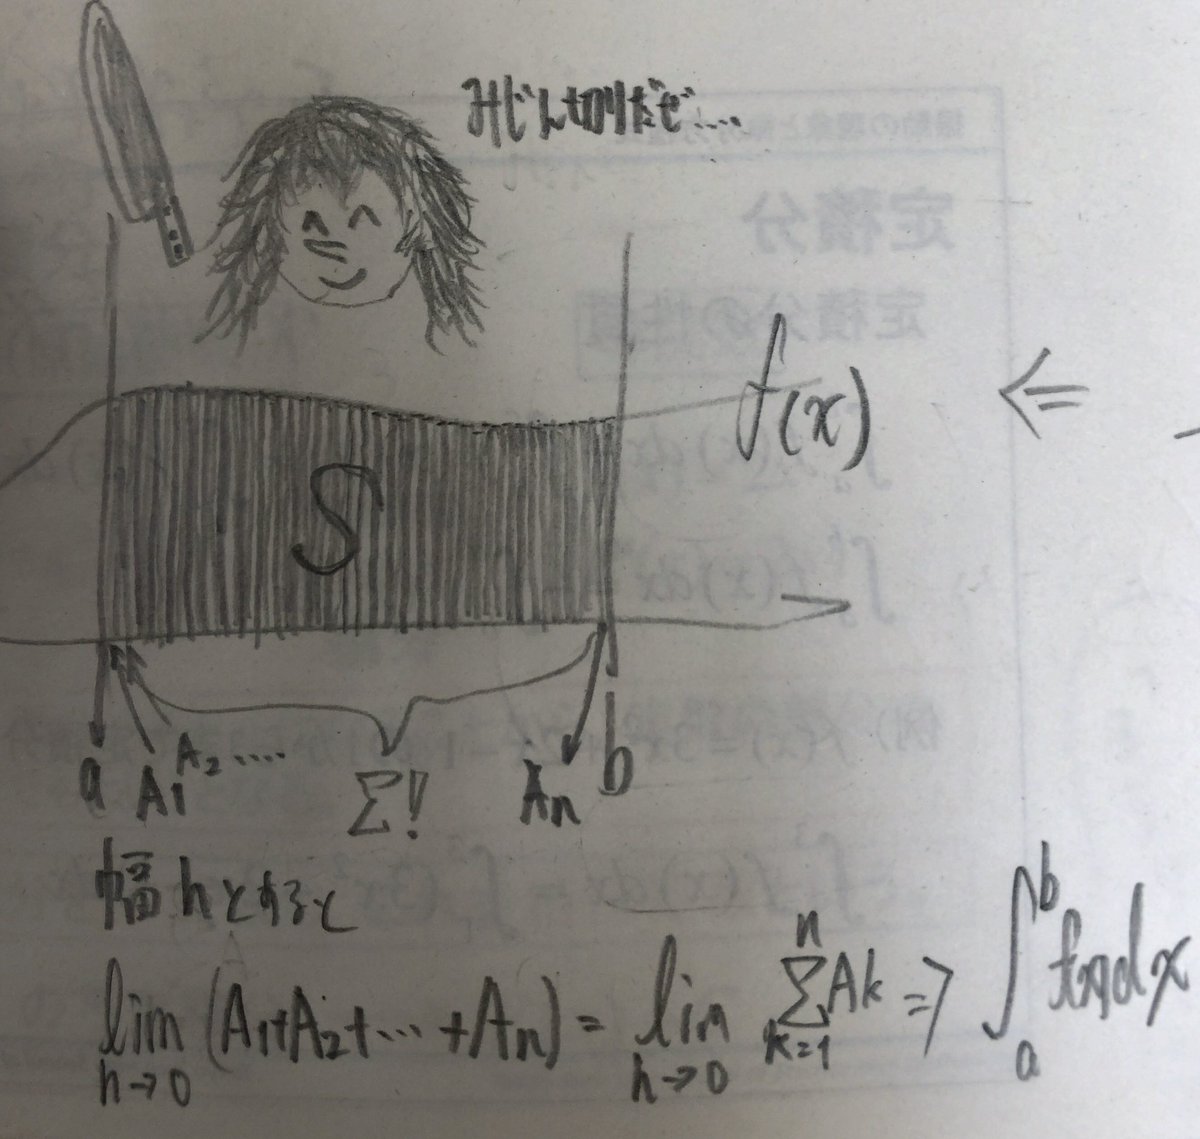 みじん切りだぜ....
f(x)
⇐
S
a A1 A2 ‥‥ Σ! An b
幅hとすると
lim h→0 (A1+A2+…+An) = lim h→0 Σ k=1 n Ak ⇒ ∫ a b f(x)dx
定積分
定積分の性質